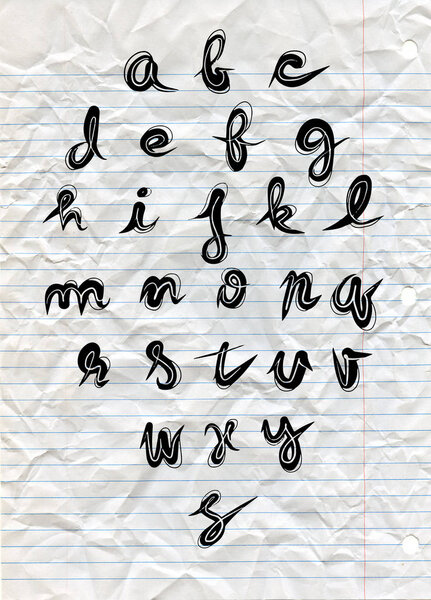 a b c
d e f g
h i j k l
m n o p q
r s t u v
w x y
s